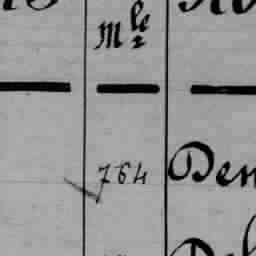 Mle
764 Den